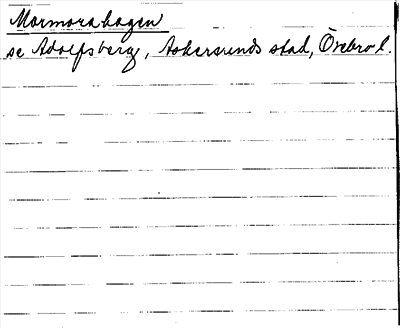 Marmorahagen
se Adolfsberg, Askersunds stad, Örebro l.